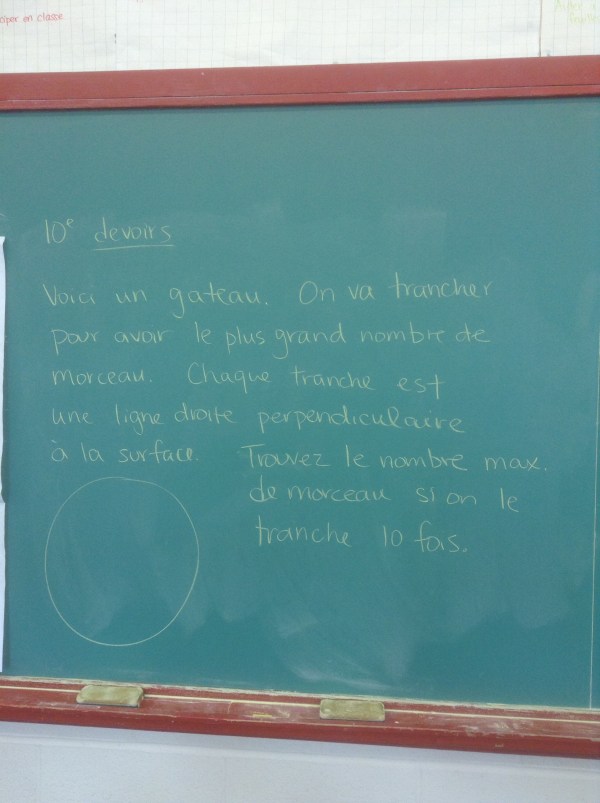 ciper en classe
10e devoirs
Voici un gateau. On va trancher
pour avoir le plus grand nombre de
morceau. Chaque tranche est
une ligne droite perpendiculaire
à la surface. Trouvez le nombre max.
de morceau si on le
tranche 10 fois.